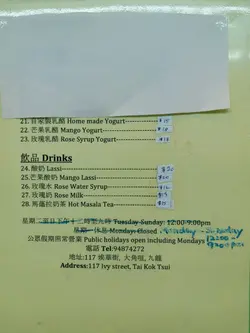 21. 自家製乳酪 Home made Yogurt
22. 芒果乳酪 Mango Yogurt
23. 玫瑰乳酪 Rose Syrup Yogurt
飲品 Drinks
24. 酸奶 Lassi
25. 芒果酸奶 Mango Lassi
26. 玫瑰水 Rose Water Syrup
27. 玫瑰奶 Rose Milk
28. 馬薩拉奶茶 Hot Masala Tea
Tuesday-Sunday: 12:00-9:00pm
Mondays Closed Monday - Sunday
公眾假期照常營業 Public holidays open including Mondays
電話 Tel:94874272
地址:117 埃華街, 大角咀, 九龍
Address:117 Ivy street, Tai Kok Tsui